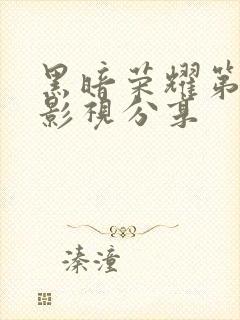 黑暗荣耀第
影视分享
溱潼